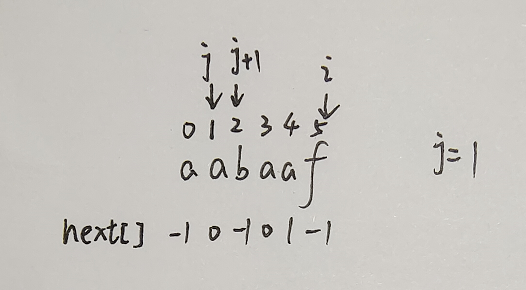 j j+1 i
↓ ↓ ↓
0 1 2 3 4 5
a a b a a f j=1
next[] -1 0 -1 0 1 -1